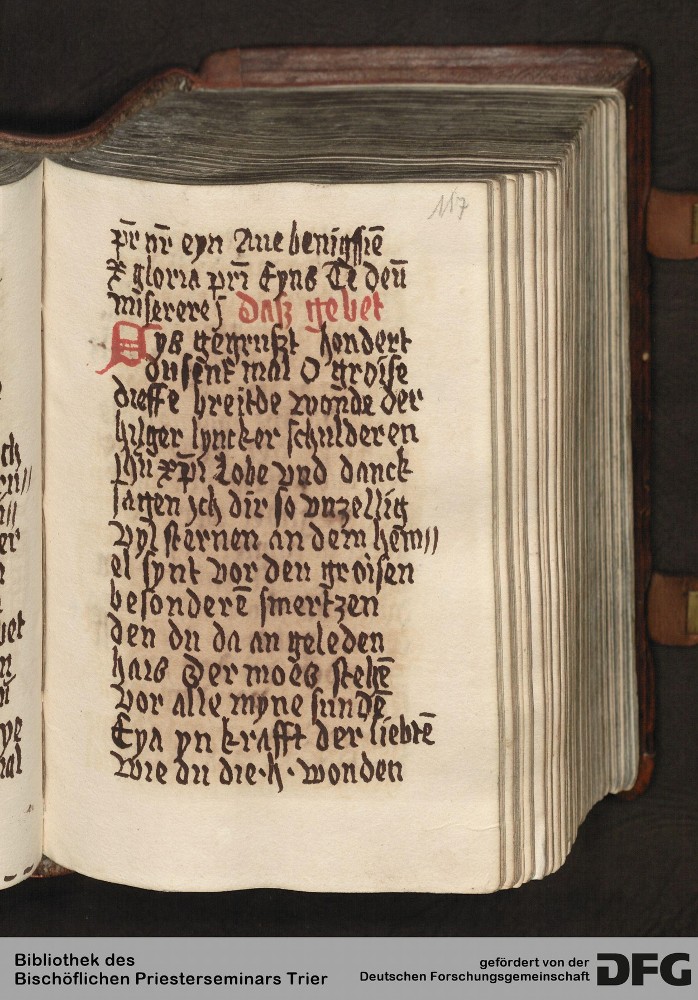 117
pr̄ nr̄ eyn Aue benigssiē
x̄ gloria pr̄i Eyns Te deū
miserere j daß gebet
Dys gegrußt hondert
dusent mal O groise
dieffe breitde wonde der
hilger lyncker schulderen
jhū xp̄i Lobe vnd danck
sagen ych dir so vnzellig
vyl sternen an dem hem//
el synt vor den groisen
besonderē smertzen
den du da an geleden
hais Der moes stehē
vor alle myne sundē
Eya yn krafft der liebtē
wie du die ·h· wonden
Bibliothek des
Bischöflichen Priesterseminars Trier
gefördert von der
Deutschen Forschungsgemeinschaft DFG